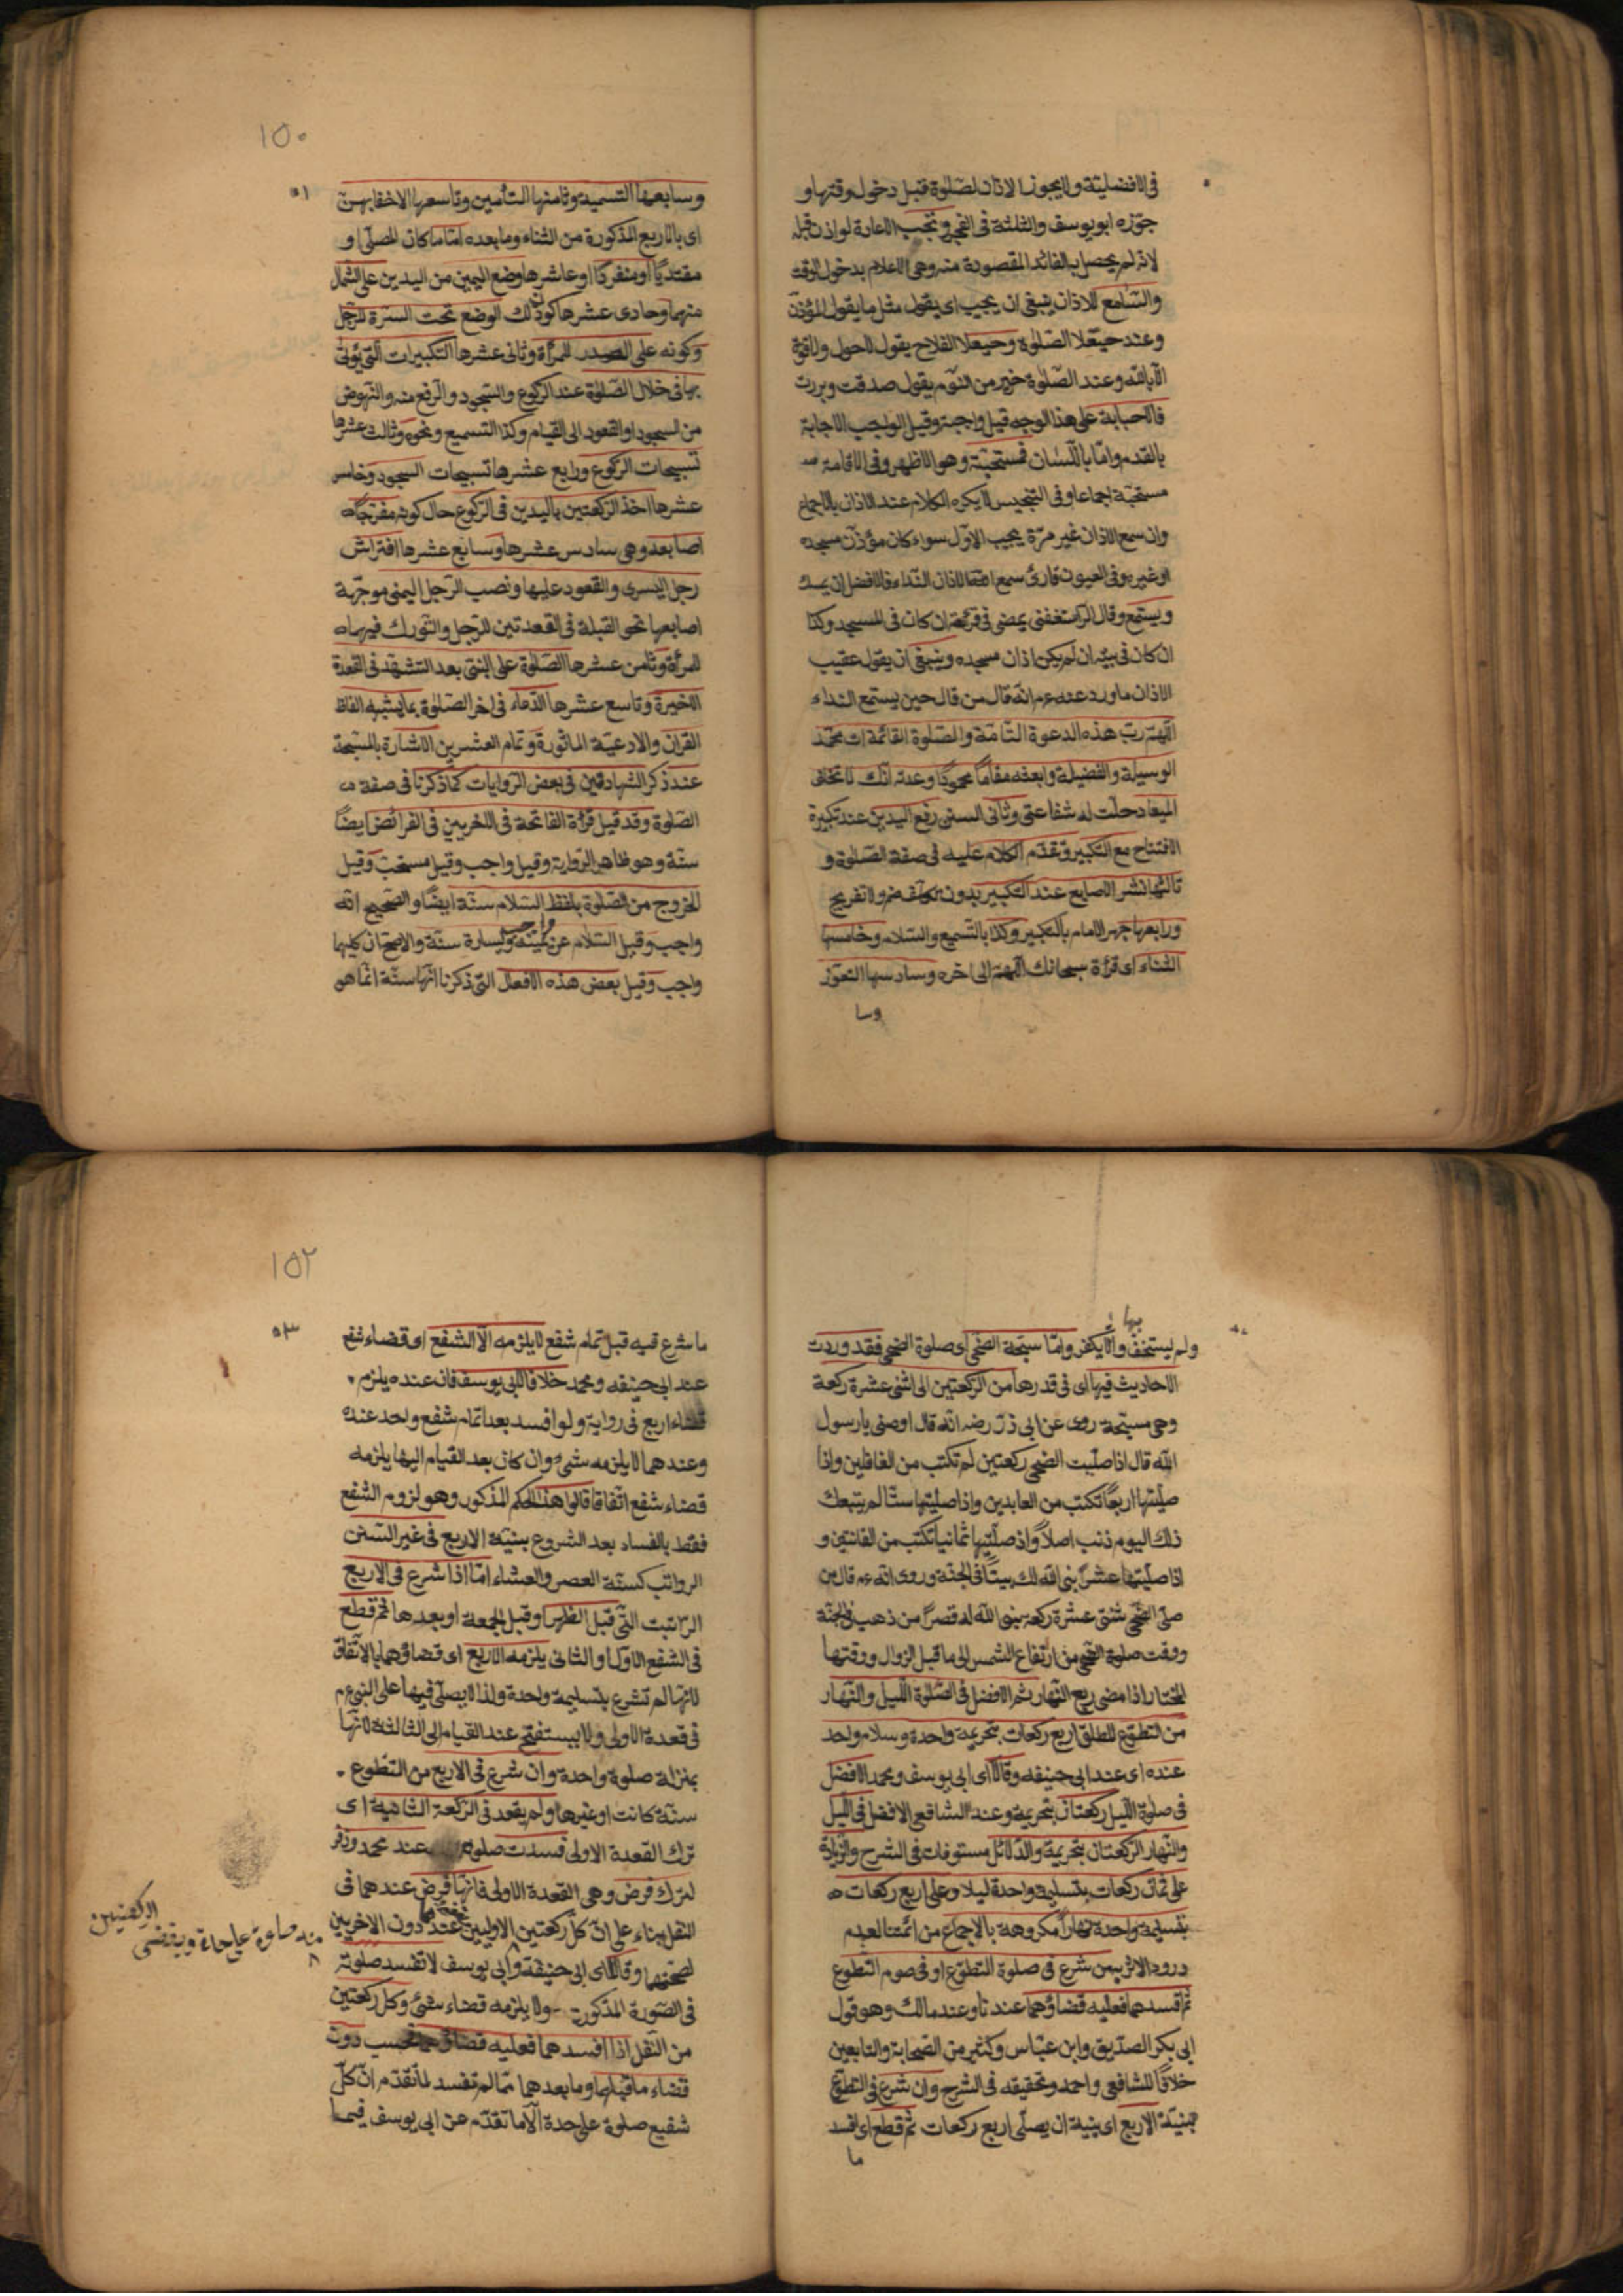 في الافضلية ولا يجوز الاذان لصلوة قبل دخول وقتها و
جوزه ابو يوسف والثلثة في الفجر وتجب الاعادة لو اذن قبله
لانه لم يحصل به الفائدة المقصودة منه وهي الاعلام بدخول الوقت
والسامع للاذان ينبغي ان يجيب اى يقول مثل ما يقول المؤذن
وعند حيعلا الصلوة وحيعلا الفلاح يقول لاحول ولا قوة
الا بالله وعند الصلوة خير من النوم يقول صدقت وبررت
فالاجابة على هذا الوجه قيل واجبة وقيل الواجب الاجابة
بالقدم واما باللسان فمستحبة وهو الاظهر وفي الاقامة
مستحبة اجماعا وفي التجنيس لا يكره الكلام عند الاذان بالاجماع
وان سمع الاذان غير مرة يجيب الاول سواء كان مؤذن مسجده
او غيره وفي العيون قارئ سمع النداء فالافضل ان يمسك
ويستمع وقال الرستغفنى يمضى في قرائته ان كان في المسجد وكذا
ان كان في بيته ان لم يكن اذان مسجده وينبغي ان يقول عقيب
الاذان ما ورد عنه عم انه قال من قال حين يستمع النداء
اللهم رب هذه الدعوة التامة والصلوة القائمة ات محمد
الوسيلة والفضيلة وابعثه مقاما محمودا وعدته انك لا تخلف
الميعاد حلت له شفاعتى وثانى السنن رفع اليدين عند تكبيرة
الافتتاح مع التكبير وتقدم الكلام عليه في صفة الصلوة و
ثالثها نشر الاصابع عند التكبير بدون تكلف ضم ولا تفريج
ورابعها جهر الامام بالتكبير وكذا بالتسميع والسلام وخامسها
الثناء اى قرأة سبحانك اللهم الى اخره وسادسها التعوذ
وسا
١٥٠
٥١
وسابعها التسمية وثامنها التأمين وتاسعها الاخفا بهن
اى بالاربع المذكورة من الثناء وما بعده اماما كان المصلى او
مقتديا او منفردا وعاشرها وضع اليمين من اليدين على الشمال
منهما وحادى عشرها كون ذلك الوضع تحت السرة للرجل
وكونه على الصدر للمرأة وثانى عشرها التكبيرات التى يؤتى
بها في خلال الصلوة عند الركوع والسجود والرفع منه والنهوض
من السجود او القعود الى القيام وكذا التسميع ونحوه وثالث عشرها
تسبيحات الركوع ورابع عشرها تسبيحات السجود وخامس
عشرها اخذ الركبتين باليدين في الركوع حال كونه مفرجا
اصابعه وهي سادس عشرها وسابع عشرها افتراش
رجل اليسرى والقعود عليها ونصب الرجل اليمنى موجهة
اصابعها نحو القبلة في القعدتين للرجل والتورك فيهما
للمرأة وثامن عشرها الصلوة على النبى بعد التشهد في القعدة
الاخيرة وتاسع عشرها الدعاء في اخر الصلوة بما يشبه الفاظ
القران والادعية الماثورة وتمام العشرين الاشارة بالمسبحة
عند ذكر الشهادتين في بعض الروايات كما ذكرنا في صفة
الصلوة وقد قيل قرأة الفاتحة في الاخريين في الفرائض ايضا
سنة وهو ظاهر الرواية وقيل واجب وقيل مستحب وقيل
الخروج من الصلوة بلفظ السلام سنة ايضا والصحيح انه
واجب وقيل السلام عن يمينه واجب ويساره سنة والاصح ان كليهما
واجب وقيل بعض هذه الافعال التى ذكرنا انها سنة انما هو
بها
ولم يستخف والا يكفر واما سبحة الضحى اى صلوة الضحى فقد وردت
الاحاديث فيها اى في قدرها من الركعتين الى اثنى عشرة ركعة
وهي مستحبة روى عن ابى ذر رضه انه قال اوصنى يا رسول
الله قال اذا صليت الضحى ركعتين لم تكتب من الغافلين واذا
صليتها اربعا تكتب من العابدين واذا صليتها ستا لم يتبعك
ذلك اليوم ذنب اصلا واذ صليتها ثمانيا تكتب من القانتين و
اذا صليتها عشرا بنى الله لك بيتا في الجنة وروى انه عم قال من
صلى الضحى ثنتى عشرة ركعة بنى الله له قصرا من ذهب في الجنة
ووقت صلوة الضحى من ارتفاع الشمس الى ما قبل الزوال ووقتها
المختار اذا مضى ربع النهار ثم الافضل في الصلوة الليل والنهار
من التطوع المطلق اربع ركعات بتحريمة واحدة وسلام واحد
عنده اى عند ابى حنيفه وقالا اى ابى يوسف ومحمد الافضل
في صلوة الليل ركعتان بتحريمة وعند الشافعى الافضل في الليل
والنهار الركعتان بتحريمة والدلائل مستوفات في الشرح والزيادة
على ثمان ركعات بتسليمة واحدة ليلا وعلى اربع ركعات
بتسليمة واحدة نهارا مكروهة بالاجماع من ائمتنا لعدم
ورود الاثر به من شرع في صلوة التطوع او في صوم التطوع
ثم افسدهما فعليه قضاؤهما عندنا وعند مالك وهو قول
ابى بكر الصديق وابن عباس وكثير من الصحابة والتابعين
خلافا للشافعى واحمد وتحقيقه في الشرح وان شرع في التطوع
بنية الاربع اى بنية ان يصلى اربع ركعات ثم قطع اى افسد
ما
١٥٢
٥٣
ما شرع فيه قبل تمام شفع لا يلزمه الا الشفع اى قضاء شفع
عند ابى حنيفه ومحمد خلافا لابى يوسف فان عنده يلزم
قضاء اربع في رواية ولو افسد بعد اتمام شفع واحد عنده
وعندهما لا يلزمه شئ وان كان بعد القيام اليها يلزمه
قضاء شفع اتفاقا قالوا هذا الحكم المذكور وهو لزوم الشفع
فقط بالفساد بعد الشروع بنية الاربع في غير السنن
الرواتب كسنة العصر والعشاء اما اذا شرع في الاربع
الراتبت التى قبل الظهر او قبل الجمعة او بعدها ثم قطع
في الشفع الاول او الثانى يلزمه الاربع اى قضاؤهما بالاتفاق
لانها لم تشرع بتسليمة واحدة ولذا لا يصلى فيها على النبى عم
في قعدة الاولى ولا يستفتح عند القيام الى الثالثة لانها
بمنزلة صلوة واحدة وان شرع في الاربع من التطوع
سنة كانت او غيرها ولم يقعد في الركعة الثانية اى
ترك القعدة الاولى فسدت صلوته عند محمد وزفر
لترك فرض وهي القعدة الاولى فانها فرض عندهما في
النفل بناء على ان كل ركعتين الاوليين عندهما دون الاخريين
منه صلوة عليحدة ويقضى
الركعتين
لصحتهما وقالا اى ابى حنيفة وابى يوسف لا تفسد صلوته
في الصورة المذكورة ولا يلزمه قضاء شئ وكل ركعتين
من النفل اذا افسدهما فعليه قضاؤهما فحسب دون
قضاء ما قبلهما وما بعدهما مما لم تفسد لما تقدم ان كل
شفيع صلوة على حدة الا ما تقدم عن ابى يوسف فيما